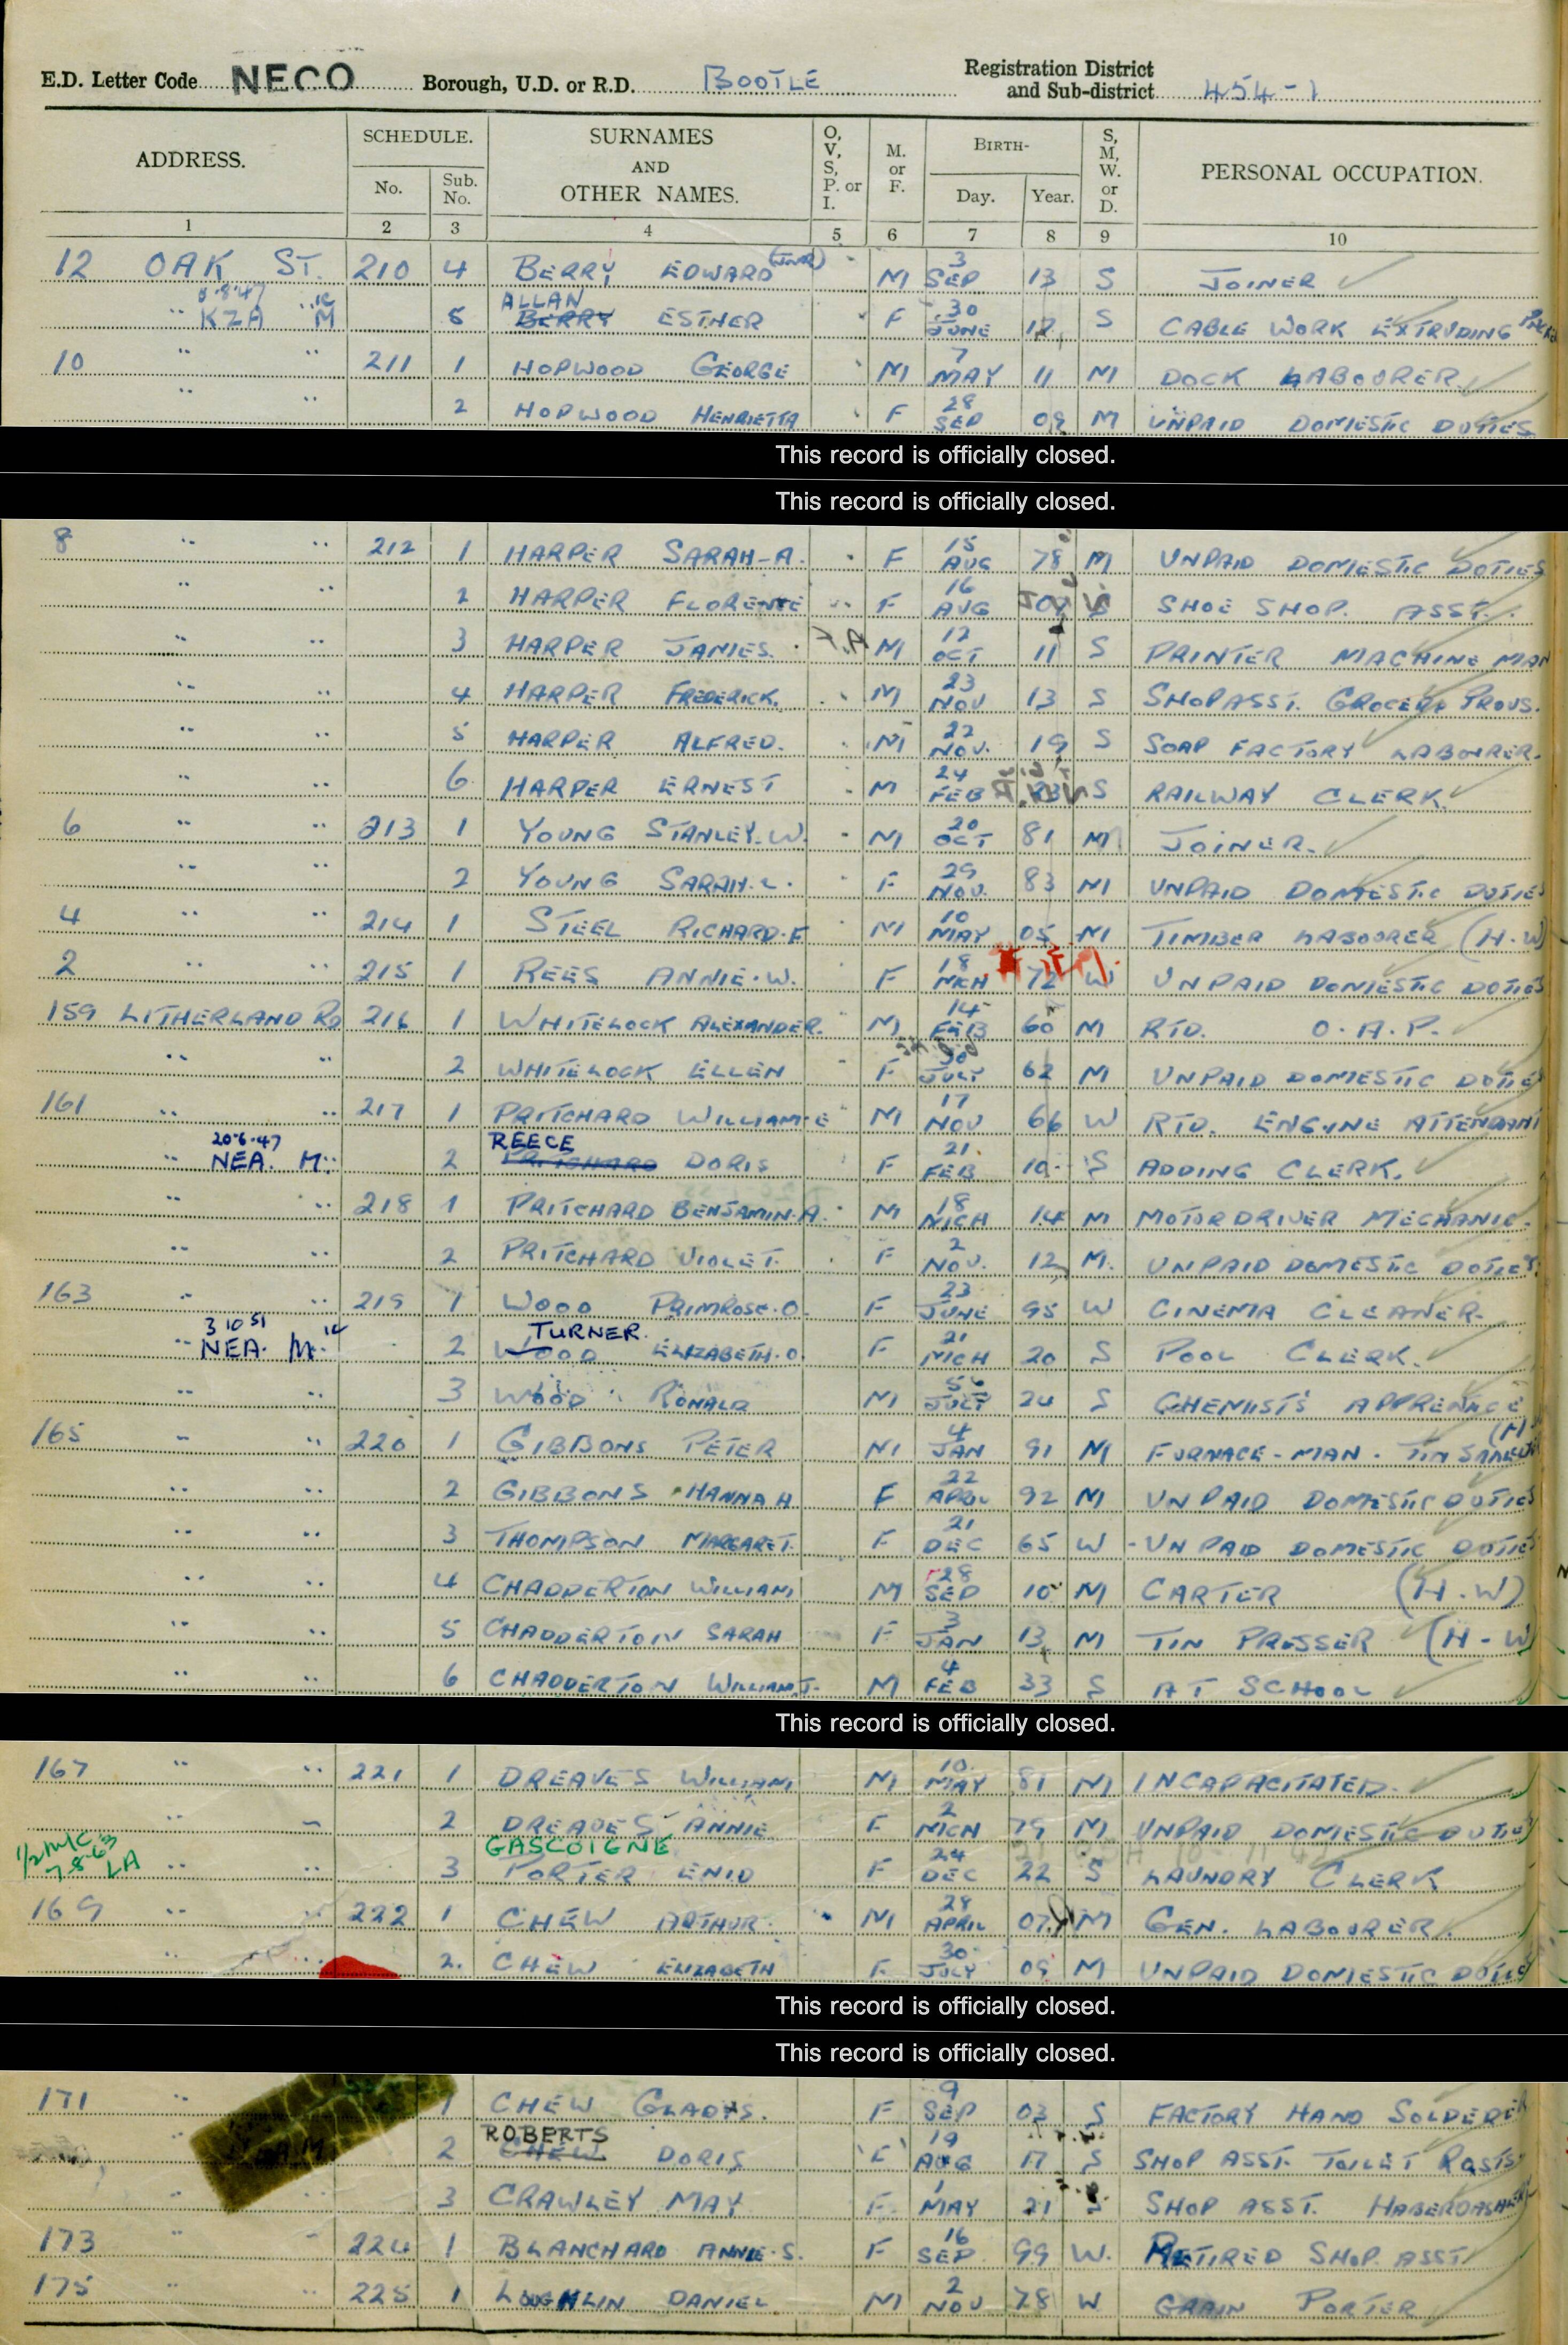 E.D. Letter Code NECO Borough, U.D. or R.D. BOOTLE Registration District and Sub-district 454-1
ADDRESS. SCHEDULE. No. Sub. No. SURNAMES AND OTHER NAMES. O, V, S, P. or I. M. or F. BIRTH- Day. Year. S, M, W. or D. PERSONAL OCCUPATION.
1 2 3 4 5 6 7 8 9 10
12 OAK ST. 210 4 BERRY EDWARD (JNR) M 3 SEP 13 S JOINER
KZA M 5 ALLAN BERRY ESTHER F 30 JUNE 17 S CABLE WORK EXTRUDING
10 " " 211 1 HOPWOOD GEORGE M 7 MAY 11 M DOCK LABOURER
" " 2 HOPWOOD HENRIETTA F 28 SEP 09 M UNPAID DOMESTIC DUTIES
This record is officially closed.
This record is officially closed.
8 " " 212 1 HARPER SARAH-A. F 15 AUG 78 M UNPAID DOMESTIC DUTIES
" " 2 HARPER FLORENCE F 16 AUG SHOE SHOP. ASST.
" " 3 HARPER JAMES. M 12 OCT 11 S PRINTER MACHINE MAN
" " 4 HARPER FREDERICK. M 23 NOV 13 S SHOP ASST. GROCERY PROVS.
" " 5 HARPER ALFRED. M 22 NOV. 19 S SOAP FACTORY LABOURER.
" " 6 HARPER ERNEST M 24 FEB 23 S RAILWAY CLERK.
6 " " 213 1 YOUNG STANLEY.W. M 20 OCT 81 M JOINER.
" " 2 YOUNG SARAH.L. F 29 NOV. 83 M UNPAID DOMESTIC DUTIES
4 " " 214 1 STEEL RICHARD.F M 10 MAY 05 M TIMBER LABOURER (H.W)
2 " " 215 1 REES ANNIE.W. F 18 MCH 72 W UNPAID DOMESTIC DUTIES
159 LITHERLAND RD 216 1 WHITELOCK ALEXANDER. M 14 FEB 60 M RTD. O.A.P.
" " 2 WHITELOCK ELLEN F 30 JULY 62 M UNPAID DOMESTIC DUTIES
161 " " 217 1 PRITCHARD WILLIAM.E M 17 NOV 66 W RTD. ENGINE ATTENDANT
20.6.47 NEA. M. 2 REECE PRITCHARD DORIS F 21 FEB 10 S ADDING CLERK.
" " 218 1 PRITCHARD BENJAMIN.A. M 18 MCH 14 M MOTOR DRIVER MECHANIC.
" " 2 PRITCHARD VIOLET. F 2 NOV. 12 M. UNPAID DOMESTIC DUTIES
163 " " 219 1 WOOD PRIMROSE.O. F 23 JUNE 95 W CINEMA CLEANER.
3 10 51 NEA. M. 2 TURNER. WOOD ELIZABETH.O. F 21 MCH 20 S POOL CLERK.
" " 3 WOOD RONALD M JULY 24 S CHEMISTS APPRENTICE
165 " " 220 1 GIBBONS PETER M 4 JAN 91 M FURNACE-MAN. TIN SMELTING
" " 2 GIBBONS HANNAH F 22 APRIL 92 M UNPAID DOMESTIC DUTIES
" " 3 THOMPSON MARGARET. F 21 DEC 65 W UNPAID DOMESTIC DUTIES
" " 4 CHADDERTON WILLIAM M 28 SEP 10 M CARTER (H.W)
" " 5 CHADDERTON SARAH F 3 JAN 13 M TIN PRESSER (H-W
" " 6 CHADDERTON WILLIAM.J. M 4 FEB 33 S AT SCHOOL
This record is officially closed.
167 " " 221 1 DREAVES WILLIAM M 10 MAY 81 M INCAPACITATED.
" " 2 DREAVES ANNIE F 2 MCH 79 M UNPAID DOMESTIC DUTIES
7.8.63 LA " " 3 GASCOIGNE PORTER ENID F 24 DEC 22 S LAUNDRY CLERK
169 " " 222 1 CHEW ARTHUR. M 28 APRIL 07 M GEN. LABOURER.
" " 2. CHEW ELIZABETH F 30 JULY 09 M UNPAID DOMESTIC DUTIES
This record is officially closed.
This record is officially closed.
171 " 1 CHEW GLADYS. F 9 SEP 03 S FACTORY HAND SOLDERER
2 ROBERTS CHEW DORIS F 19 AUG 17 S SHOP ASST. TOILET
" " 3 CRAWLEY MAY F 1 MAY 21 S SHOP ASST. HABERDASHERY
173 " " 224 1 BLANCHARD ANNIE.S. F 16 SEP 99 W. RETIRED SHOP. ASST
175 " " 225 1 LOUGHLIN DANIEL M 2 NOV 78 W GRAIN PORTER